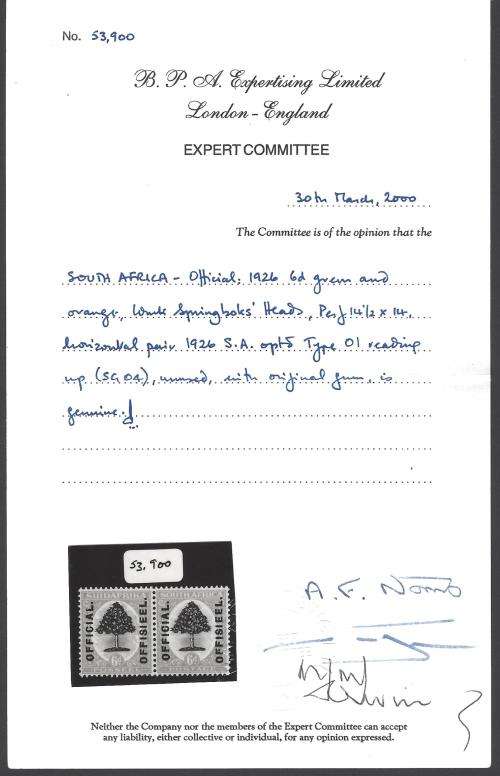 No. 53,900
B. P. A. Expertising Limited
London - England
EXPERT COMMITTEE
30th March, 2000
The Committee is of the opinion that the
SOUTH AFRICA - Official; 1926 6d green and
orange, Wmk Springboks' Heads, Perf 14½ x 14,
horizontal pair 1926 S.A. optd Type O1 reading
up (SG O4), unused, with original gum, is
genuine.
53,900
SUIDAFRIKA SOUTH AFRICA
OFFICIAL. OFFISIEEL. OFFICIAL. OFFISIEEL.
6d 6d
A. F. Norris
Neither the Company nor the members of the Expert Committee can accept
any liability, either collective or individual, for any opinion expressed.